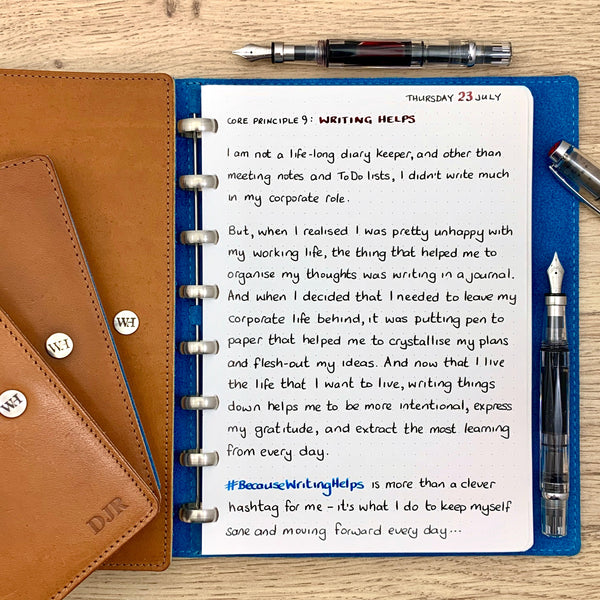 THURSDAY 23 JULY
CORE PRINCIPLE 9: WRITING HELPS
I am not a life-long diary keeper, and other than
meeting notes and ToDo lists, I didn't write much
in my corporate role.
But, when I realised I was pretty unhappy with
my working life, the thing that helped me to
organise my thoughts was writing in a journal.
And when I decided that I needed to leave my
corporate life behind, it was putting pen to
paper that helped me to crystallise my plans
and flesh-out my ideas. And now that I live
the life that I want to live, writing things
down helps me to be more intentional, express
my gratitude, and extract the most learning
from every day.
#BecauseWritingHelps is more than a clever
hashtag for me - it's what I do to keep myself
sane and moving forward every day...
WH
WH
WH
DJR